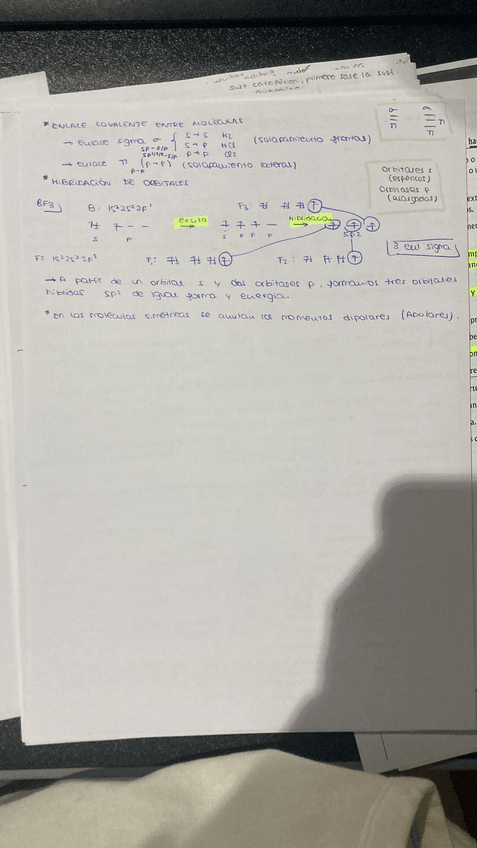 sust. covalente, primero sose la sust
* ENLACE COVALENTE ENTRE MOLÉCULAS
→ Enlace sigma σ { S→S H2
S→P HCl (solapamiento frontal)
P→P Cl2
→ Enlace π (P-P) (solapamiento lateral)
P-P
σ
π
π
Orbitales s
(esféricos)
Orbitales p
(alargados)
* HIBRIDACIÓN DE ORBITALES
BF3 B: 1s²2s²2p¹ F3:
excita → hibridación →
S P S P P P SP2
3 enl sigma
F: 1s²2s²2p⁵ F1: F2:
→ A partir de un orbital s y dos orbitales p, formamos tres orbitales
híbridos sp² de igual forma y energía.
* En las moléculas simétricas se anulan los momentos dipolares (Apolares).